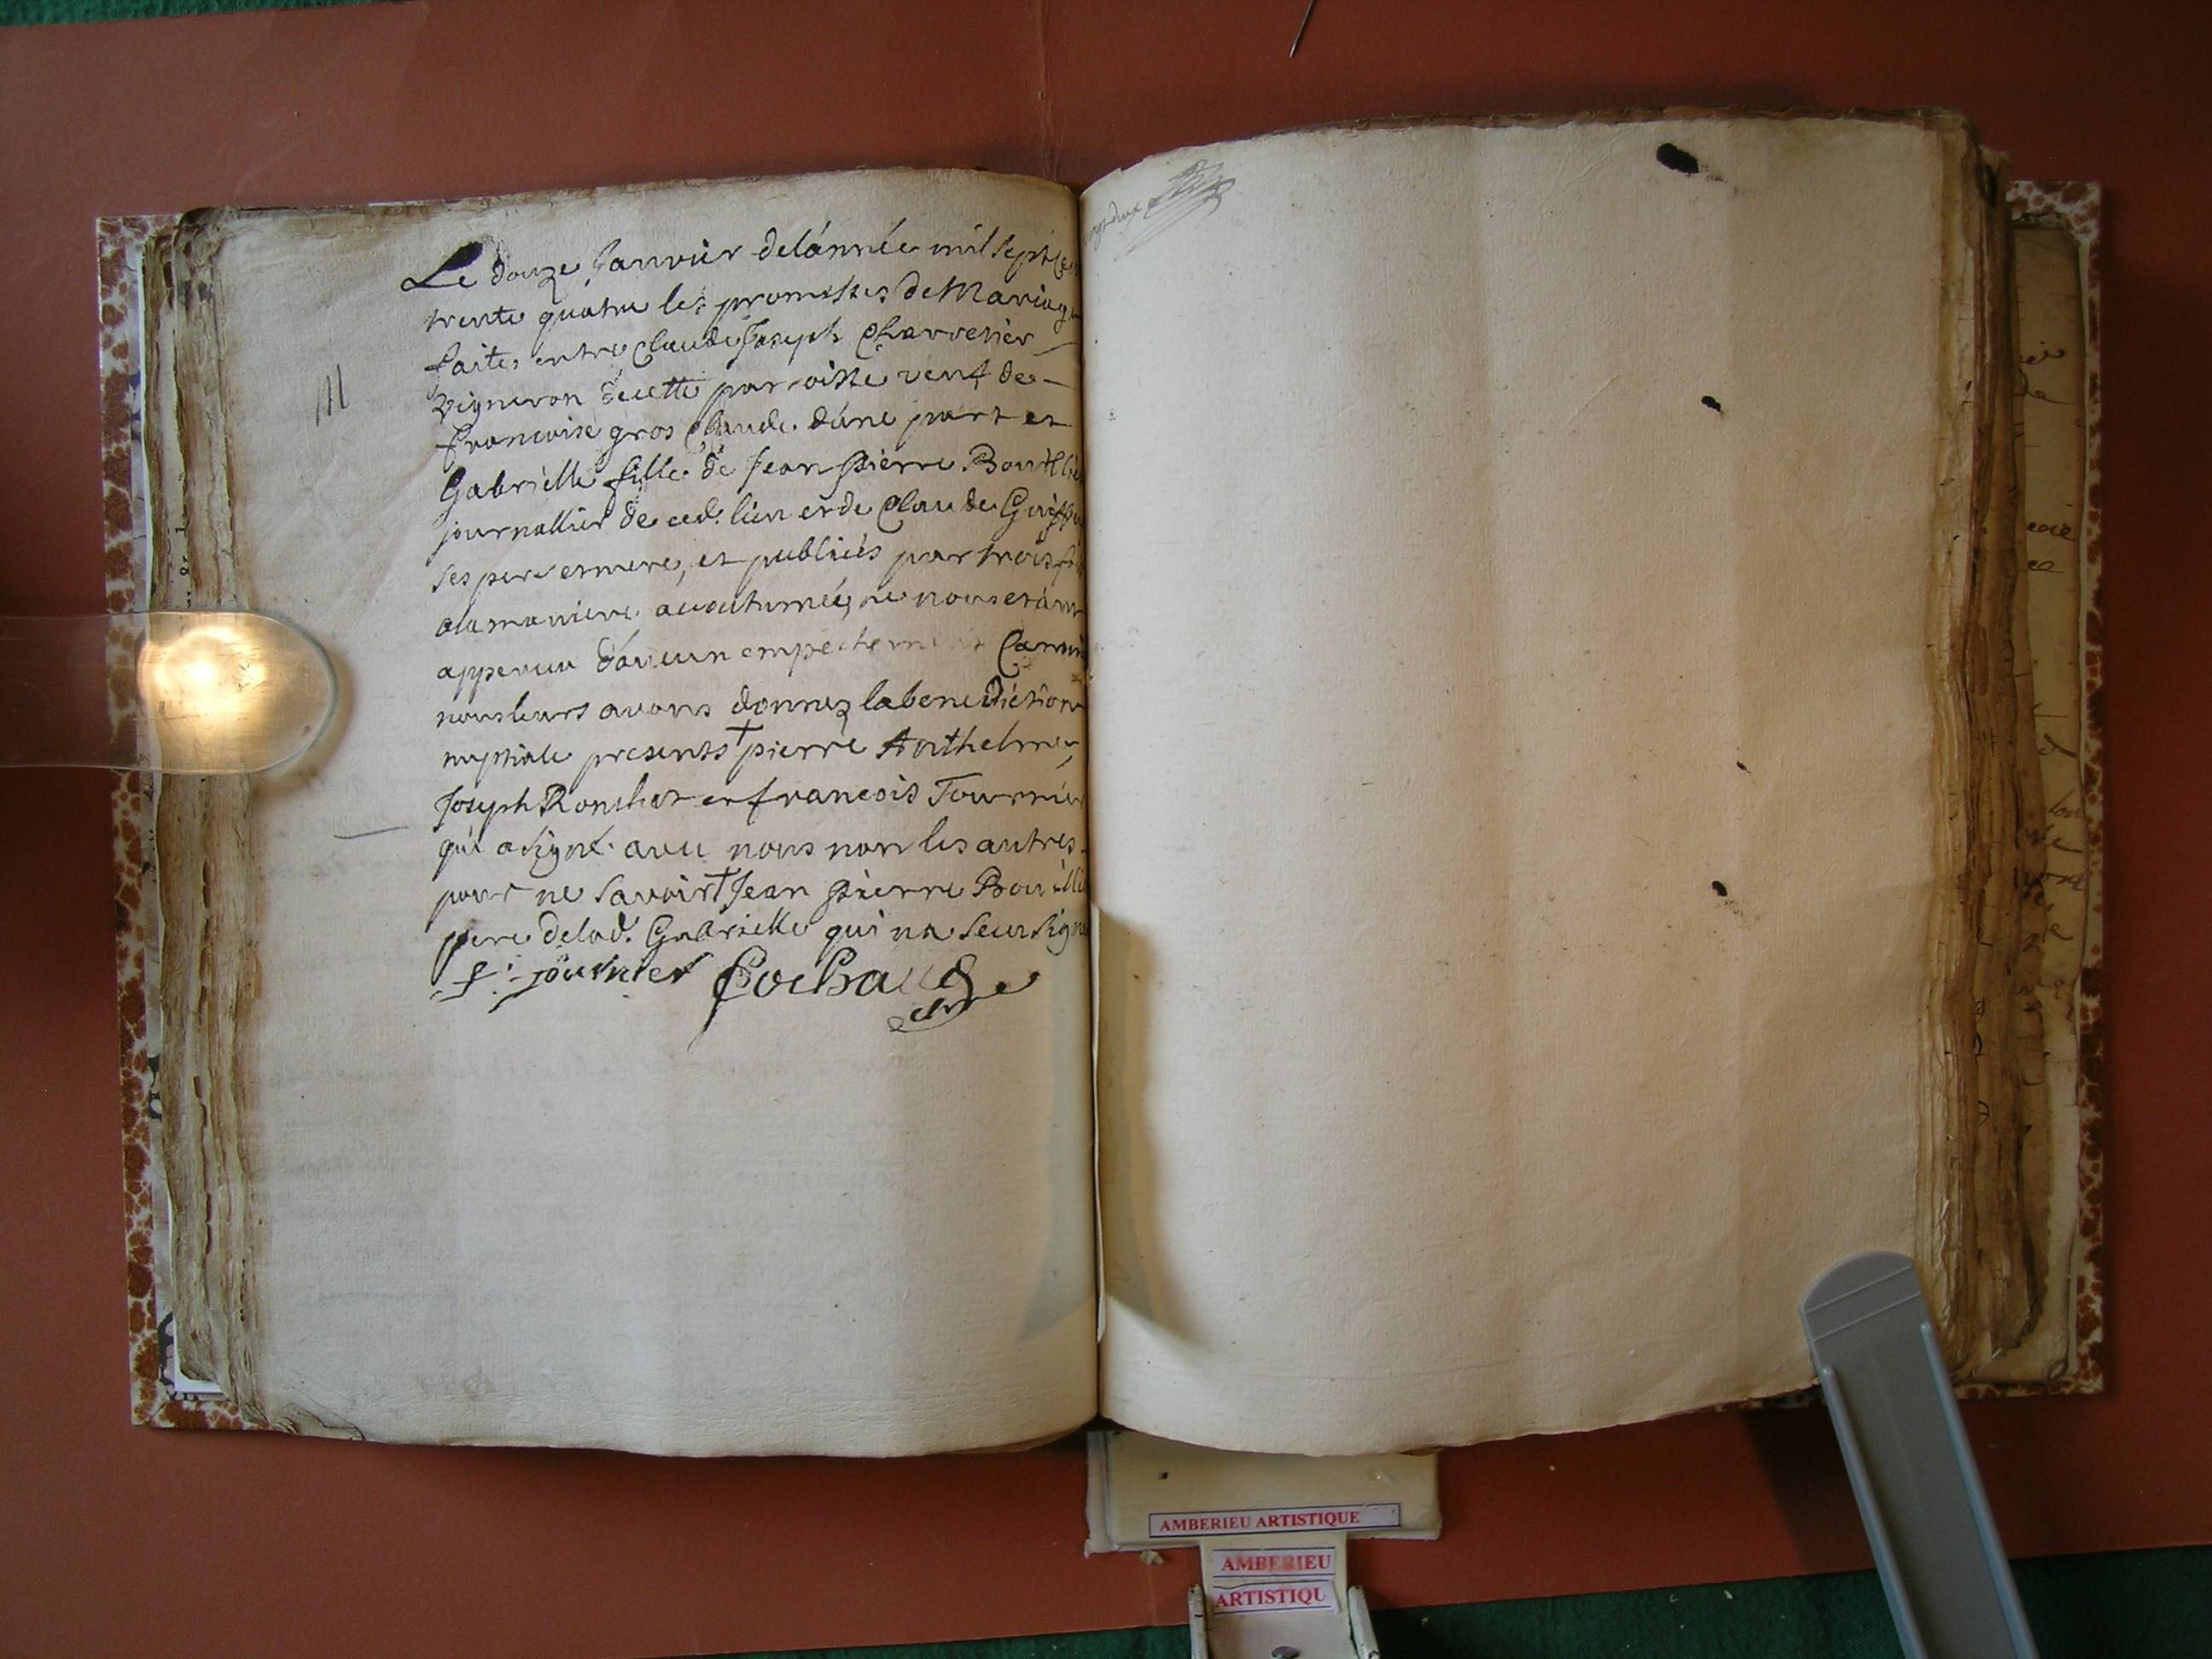 M
Le douze Janvier de lánnée mil sept Ce
trente quatre les promesses de Mariage
faites entre Claude Joseph Charvetier
vigneron de cette parroisse veuf de
francoise gros Claude. dúne part et
Gabrielle fille de Jean pierre Bouillie
journallier de ced. lieu et de Claude
ses pere et mere, et publiées par trois f
ala maniere accoutumée, ne nous etánt
apperceu dáucun empechement Canoni
nous leurs avons donnez la benediction
nuptiale presents † pierre Anthelme,
Joseph Ronchet et francois Tournier
qui a signé avec nous non les autres
pour ne savoir † Jean pierre Bouillie
pere delad. Gabrielle qui na sceu signe
f. tournier Cochard
AMBERIEU ARTISTIQUE
AMBERIEU
ARTISTIQU